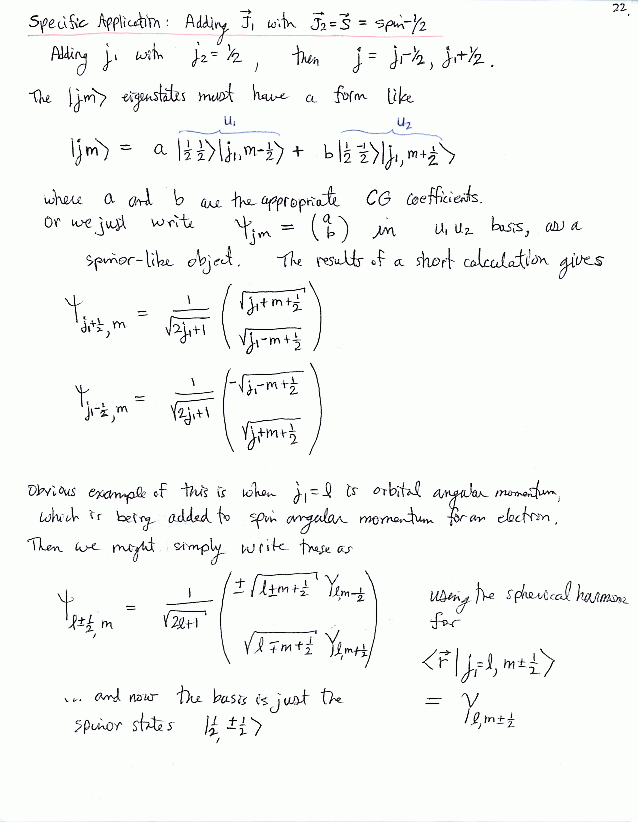 22.
Specific Application: Adding J⃗₁ with J⃗₂ = S⃗ = spin-1/2
Adding j₁ with j₂ = 1/2, then j = j₁-1/2, j₁+1/2.
The |jm⟩ eigenstates must have a form like
u₁ u₂
|jm⟩ = a |½ ½⟩|j₁, m-½⟩ + b |½ -½⟩|j₁, m+½⟩
where a and b are the appropriate CG coefficients.
Or we just write Ψ_jm = (a b) in u₁ u₂ basis, as a
spinor-like object. The results of a short calculation gives
Ψ_{j₁+½, m} = 1/√(2j₁+1) ( √(j₁+m+½) √(j₁-m+½) )
Ψ_{j₁-½, m} = 1/√(2j₁+1) ( -√(j₁-m+½) √(j₁+m+½) )
Obvious example of this is when j₁=l is orbital angular momentum,
which is being added to spin angular momentum for an electron.
Then we might simply write these as
Ψ_{l±½, m} = 1/√(2l+1) ( ±√(l±m+½) Y_{l,m-½} √(l∓m+½) Y_{l,m+½} )
using the spherical harmonic
for
⟨r⃗ | j₁=l, m±½⟩
= Y_{l,m±½}
... and now the basis is just the
spinor states |½, ±½⟩